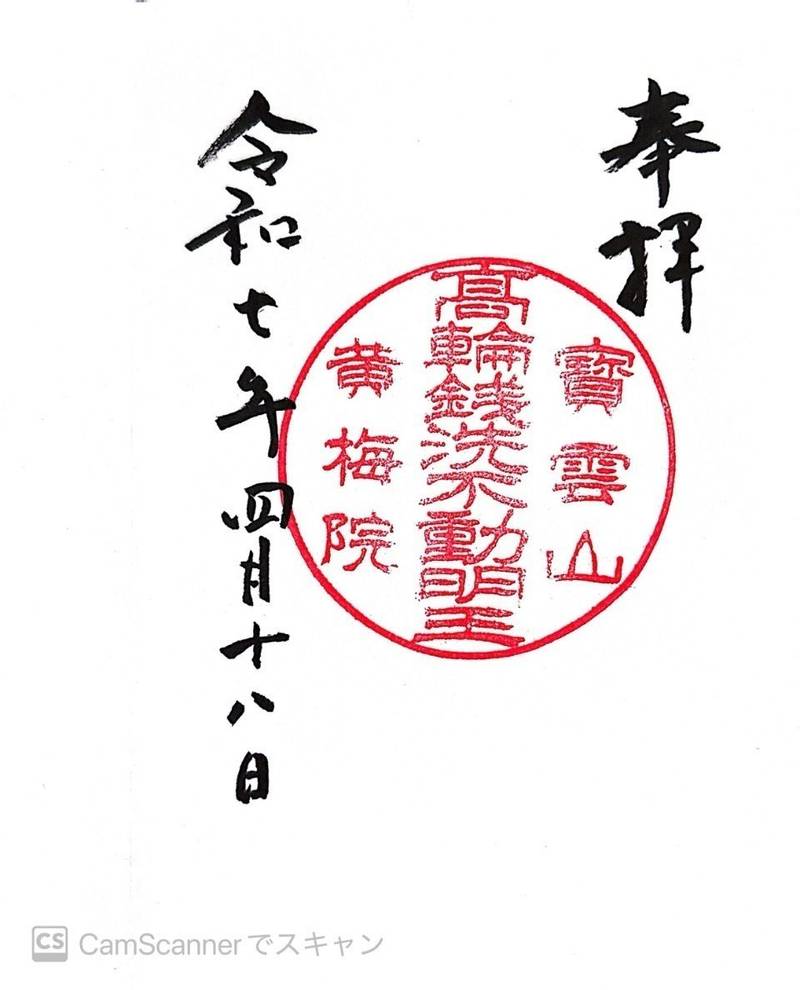 奉拝
寶雲山
髙輪銭洗不動明王
黄梅院
令和七年四月十八日
CS CamScanner でスキャン